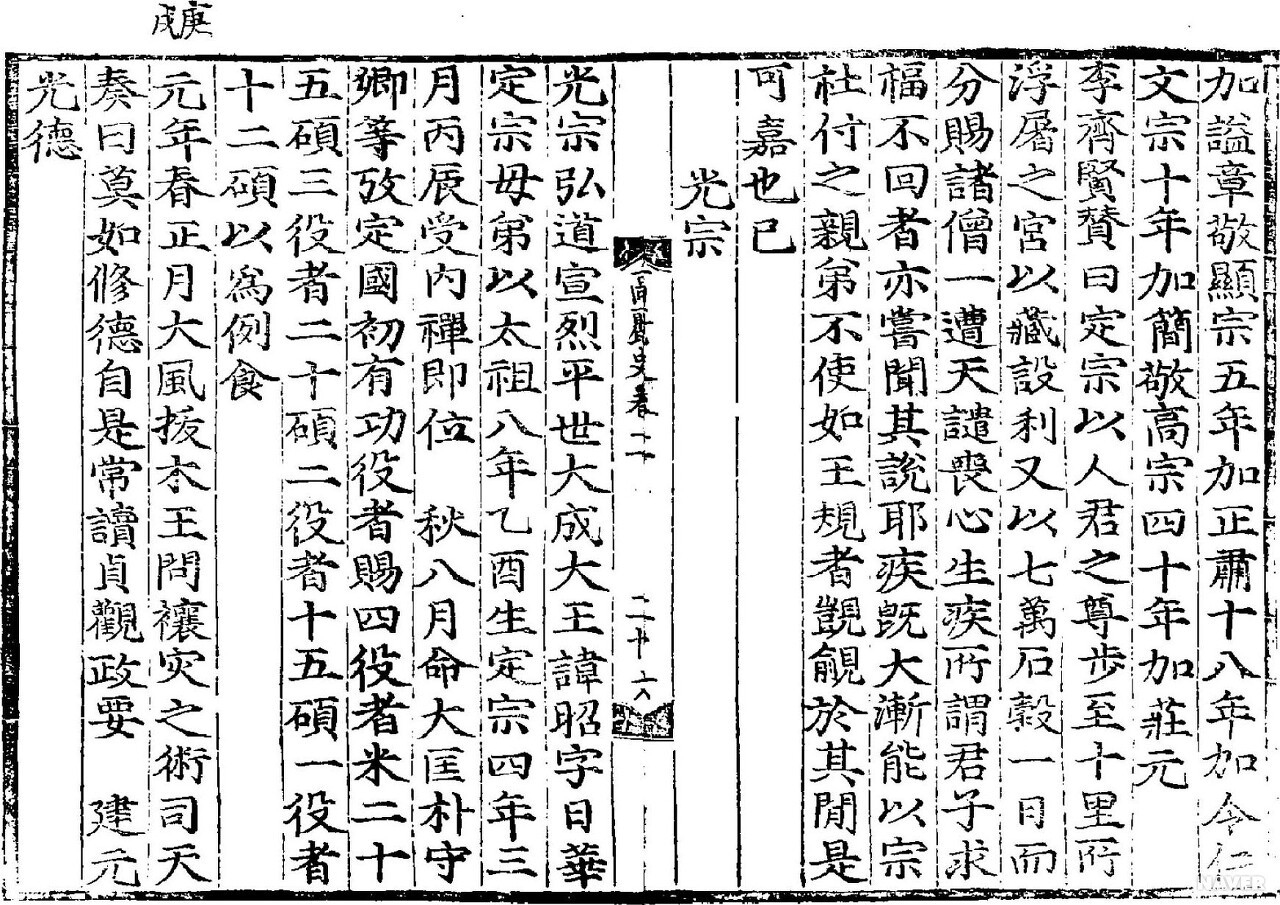 加謚章敬顯宗五年加正肅十八年加令仁
文宗十年加簡敬高宗四十年加莊元
李齊賢贊曰定宗以人君之尊步至十里所
浮屠之宮以藏設利又以七萬石穀一日而
分賜諸僧一遭天譴喪心生疾所謂君子求
福不回者亦嘗聞其說耶疾旣大漸能以宗
社付之親弟不使如王規者覬覦於其閒是
可嘉也已
光宗
高麗史卷二
二十六
光宗弘道宣烈平世大成大王諱昭字日華
定宗母弟以太祖八年乙酉生定宗四年三
月丙辰受內禪卽位 秋八月命大匡朴守
卿等攷定國初有功役者賜四役者米二十
五碩三役者二十碩二役者十五碩一役者
十二碩以爲例食
庚戌
元年春正月大風拔木王問禳灾之術司天
奏曰莫如修德自是常讀貞觀政要 建元
光德
NAVER